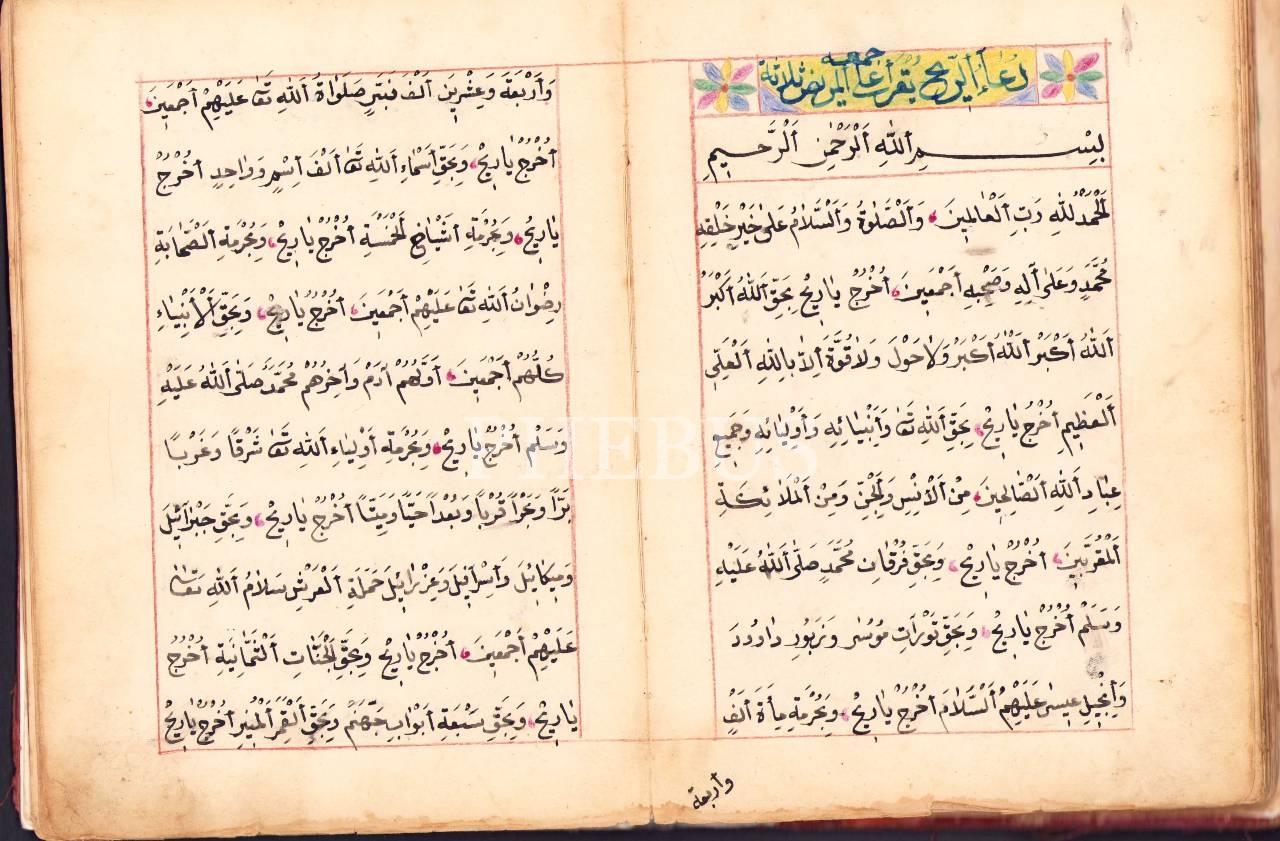 دُعَاءُ اَلرّ۪يحِ يُقْرَأُ عَلَى الْمَرِيضِ ثَلَاثَةَ
جمعه
بِسْمِ اَللّٰهِ اَلْرَّحْمٰنِ اَلْرَّحِيمِ
اَلْحَمْدُ لِلّٰهِ رَبِّ اَلْعَالَمِينَ وَاَلْصَّلٰوةُ وَاَلْسَّلَامُ عَلٰى خَيْرِ خَلْقِهِ
مُحَمَّدٍ وَعَلٰى آلِهِ وَصَحْبِهِ اَجْمَعِينَ اُخْرُجْ يَارِيحْ بِحَقِّ اَللّٰهُ اَكْبَرُ
اَللّٰهُ اَكْبَرْ اَللّٰهُ اَكْبَرُ وَلَا حَوْلَ وَلَا قُوَّةَ اَلِاَّ بِاللّٰهِ اَلْعَلِّى
اَلْعَظِيمِ اُخْرُجْ يَارِيحْ بِحَقِّ اَللّٰهِ تَعَا وَاَنْبِيَائِهِ وَاَوْلِيَائِهِ وَجَمِيعِ
عِبَادِ اَللّٰهِ اَلْصَّالِحِينَ مِنْ اَلْاِنْسِ وَلْجِنِّ وَمِنْ اَلْمَلَائِكَةِ
اَلْمُقَرَّبِينَ اُخْرُجْ يَارِيحْ وَبِحَقِّ فُرْقَانِ مُحَمَّدٍ صَلَّى اَللّٰهُ عَلَيْهِ
وَسَلَّمْ اُخْرُجْ يَارِيحْ وَبِحَقِّ تَوْرَاتِ مُوسٰى وَزَبُورِ دَاوُدَ
وَاِنْجِيلِ عِيسٰى عَلَيْهِمُ اَلْسَّلَامَ اُخْرُجْ يَارِيحْ وَبِحُرْمَةِ مِأَةَ اَلْفٍ
وأربعة
وَاَرْبَعَةَ وَعِشْرِينَ اَلْفَ نَبِيٍّ صَلَوَاةُ اَللّٰهِ تَعَا عَلَيْهِمْ اَجْمَعِينَ
اُخْرُجْ يَارِيحْ وَبِحَقِّ اَسْمَاءِ اَللّٰهِ تَعَا اَلْفَ اِسْمٍ وَوَاحِدٍ اُخْرُجْ
يَارِيحْ وَبِحُرْمَةِ اَشْبَاخِ لْخَمْسَةِ اُخْرُجْ يَارِيحْ وَبِحُرْمَةِ اَلْصَّحَابَةِ
رِضْوَانُ اَللّٰهِ تَعَا عَلَيْهِمْ اَجْمَعِينَ اُخْرُجْ يَارِيحْ وَبِحَقِّ اَلْاَنْبِيَاءِ
كُلُّهُمْ اَجْمَعِينَ اَوَّلُهُمْ اٰدَمْ وَاٰخِرُهُمْ مُحَمَّدْ صَلَّى اَللّٰهُ عَلَيْهِ
وَسَلَّمْ اُخْرُجْ يَارِيحْ وَبِحُرْمَةِ اَوْلِيَاءِ اَللّٰهِ تَعَا شَرْقًا وَغَرْبًا
بَرًّا وَبَحْرًا قُرْبًا وَبُعْدًا حَيًّا وَمَيِّتًا اُخْرُجْ يَارِيحْ وَبِحَقِّ جَبْرَآئِلَ
وَمِيكَايِلَ وَاَسْرَآفِيلَ وَعِزْرَايِلَ حَمَلَةِ اَلْعَرْشِ سَلَامُ اَللّٰهِ تَعَالٰى
عَلَيْهِمْ اَجْمَعِينَ اُخْرُجْ يَارِيحْ وَبِحَقِّ لْجَنَّاتِ اَلْثَّمَانِيَةِ اُخْرُجْ
يَارِيحْ وَبِحَقِّ سَبْعَةِ اَبْوَابِ جَهَنَّمْ وَبِحَقِّ اَلْقَمَرِ اَلْمُنِيرِ اُخْرُجْ يَارِيحْ
PHEBUS